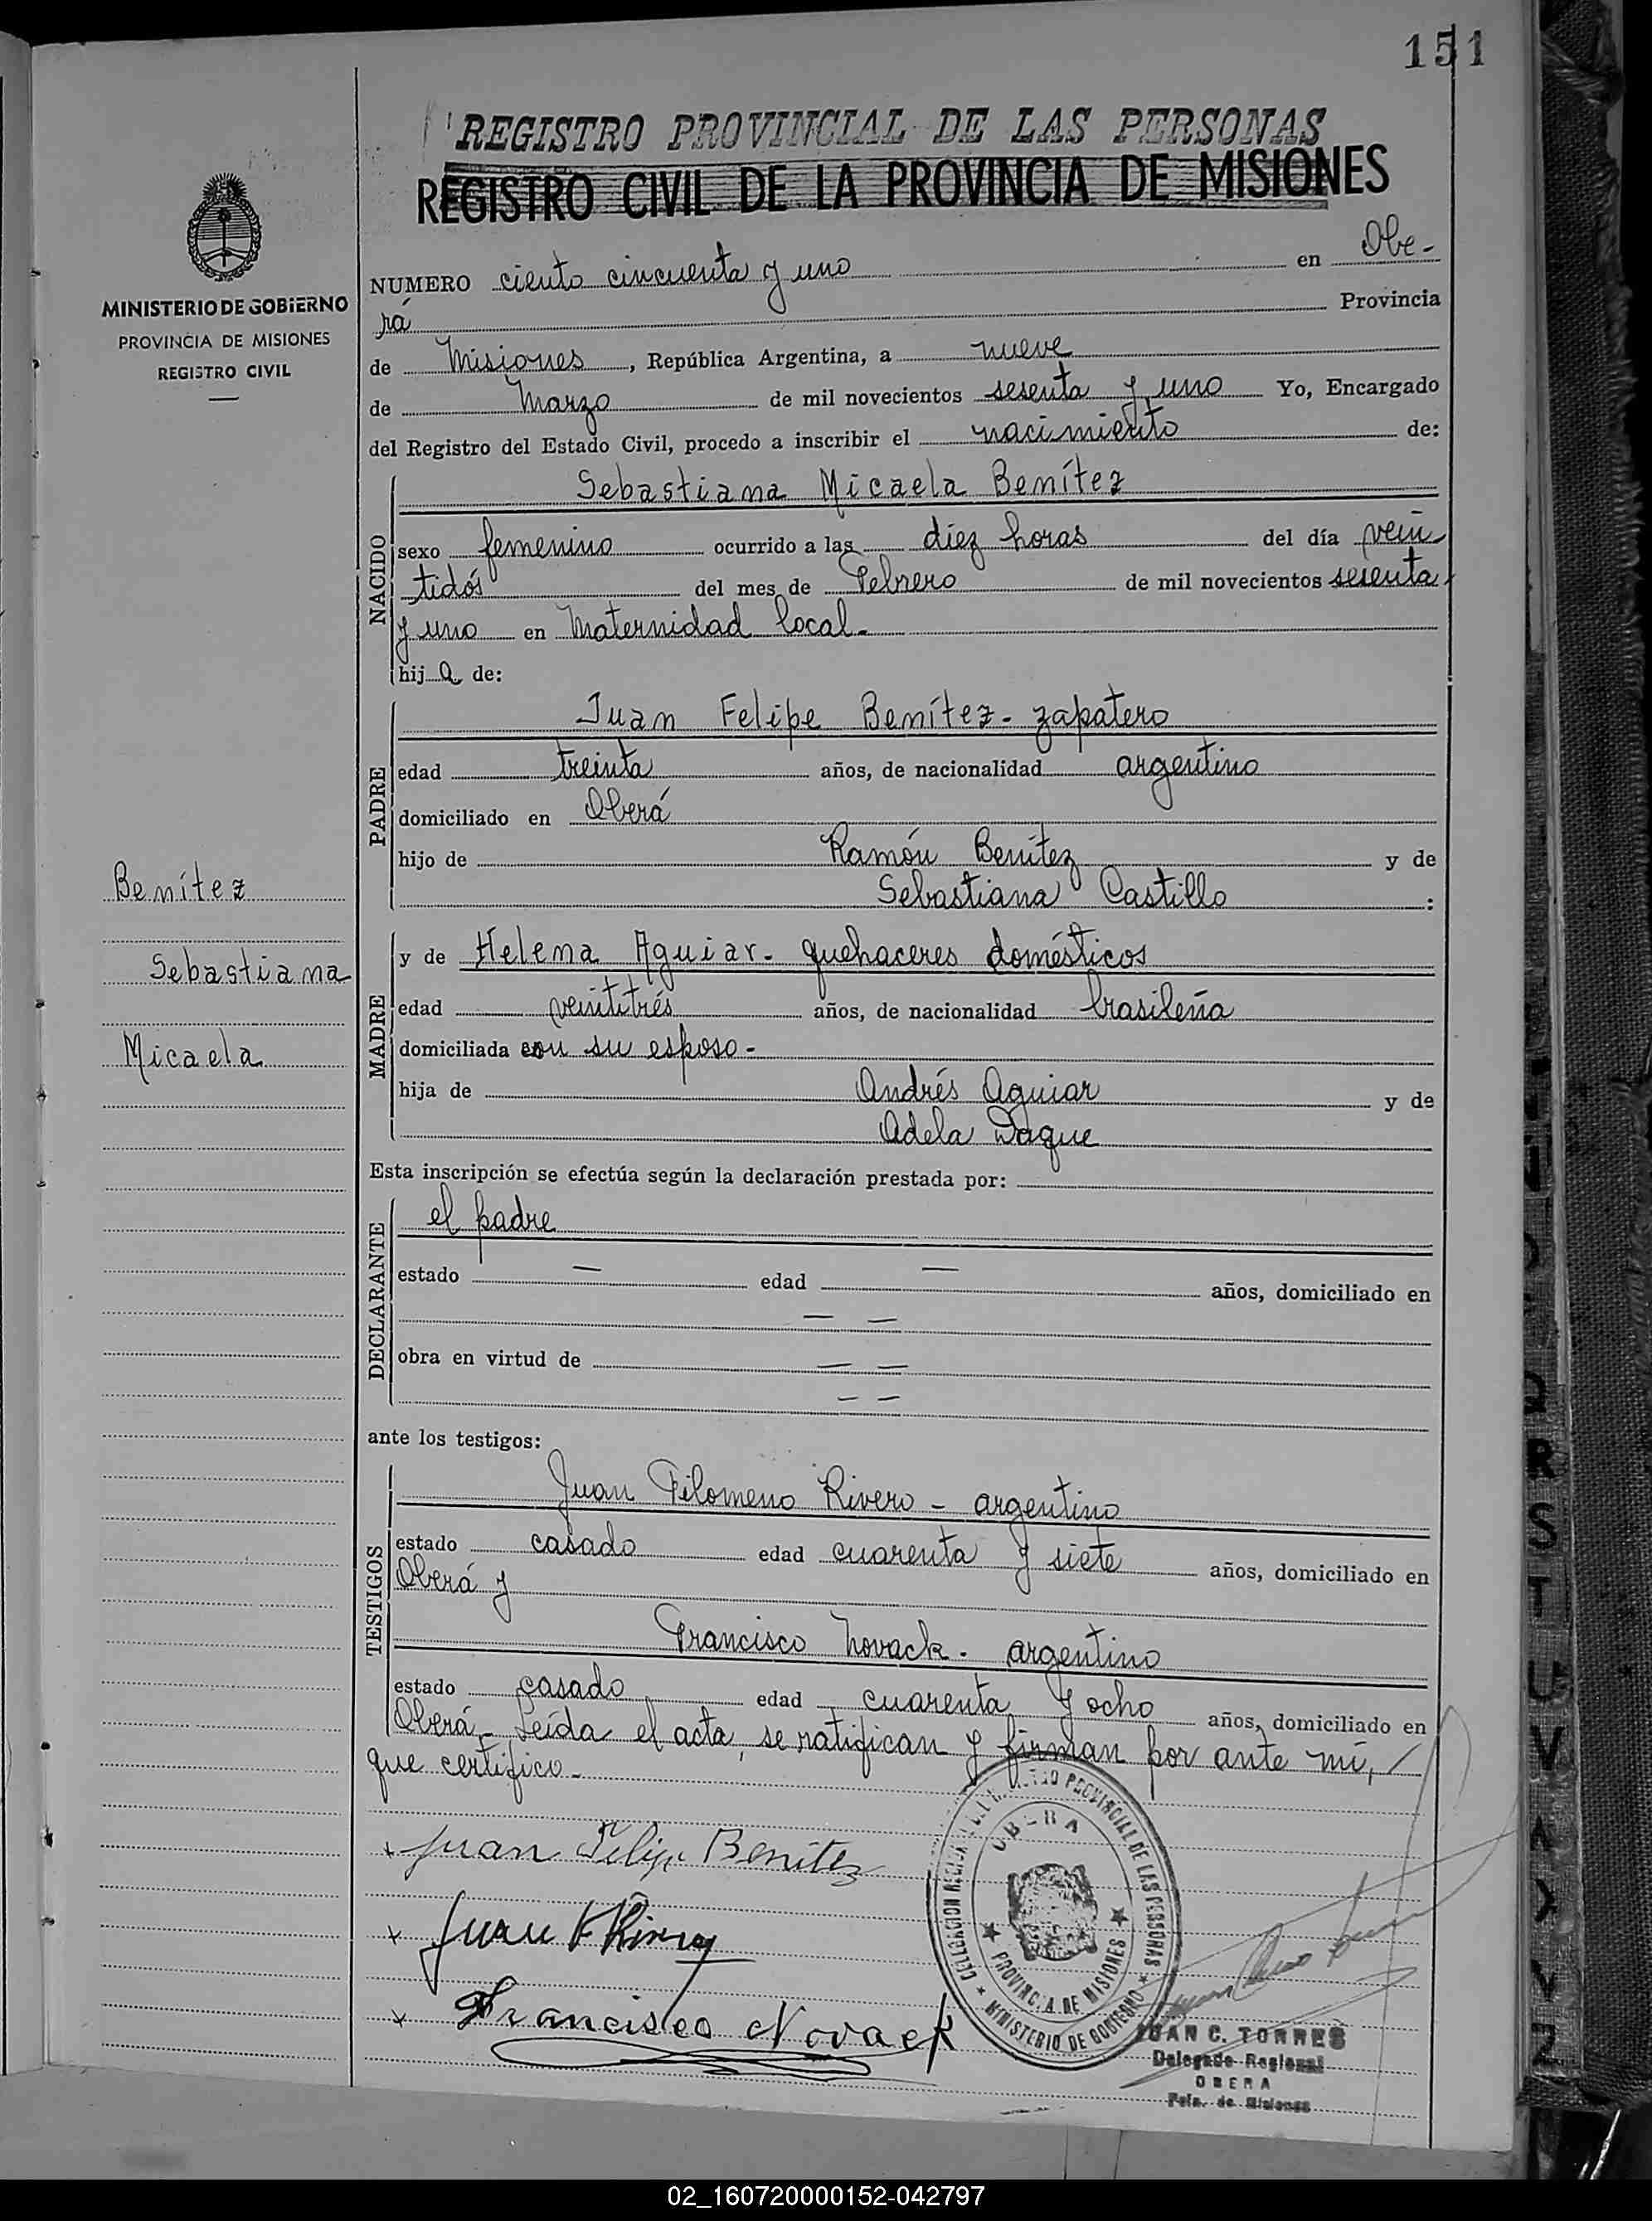 151
REGISTRO PROVINCIAL DE LAS PERSONAS
REGISTRO CIVIL DE LA PROVINCIA DE MISIONES
MINISTERIO DE GOBIERNO
PROVINCIA DE MISIONES
REGISTRO CIVIL
NUMERO ciento cincuenta y uno en Obe-
rá Provincia
de Misiones, República Argentina, a nueve
de Marzo de mil novecientos sesenta y uno Yo, Encargado
del Registro del Estado Civil, procedo a inscribir el nacimiento de:
NACIDO
Sebastiana Micaela Benítez
sexo femenino ocurrido a las diez horas del día vein
tidós del mes de Febrero de mil novecientos sesenta
y uno en Maternidad local.
hija de:
PADRE
Juan Felipe Benítez- zapatero
edad treinta años, de nacionalidad argentino
domiciliado en Oberá
hijo de Ramón Benítez y de
Sebastiana Castillo :
Benítez
Sebastiana
Micaela
MADRE
y de Helena Aguiar- quehaceres domésticos
edad veintitrés años, de nacionalidad brasileña
domiciliada con su esposo-
hija de Andrés Aguiar y de
Adela Daque
Esta inscripción se efectúa según la declaración prestada por:
DECLARANTE
el padre
estado — edad — años, domiciliado en
— —
obra en virtud de — —
— —
ante los testigos:
TESTIGOS
Juan Filomeno Rivero - argentino
estado casado edad cuarenta y siete años, domiciliado en
Oberá y
Francisco Novack. argentino
estado casado edad cuarenta y ocho años, domiciliado en
Oberá- Leída el acta, se ratifican y firman por ante mí,
que certifico-
Juan Felipe Benítez
Juan F Rivero
Francisco Novack
PROVINCIAL DE LAS PERSONAS
OBERA
PROVINCIA DE MISIONES
MINISTERIO DE GOBIERNO
JUAN C. TORRES
Delegado Regional
OBERA
Pcia. de Misiones
R
S
T
U
V
Z
02_160720000152-042797